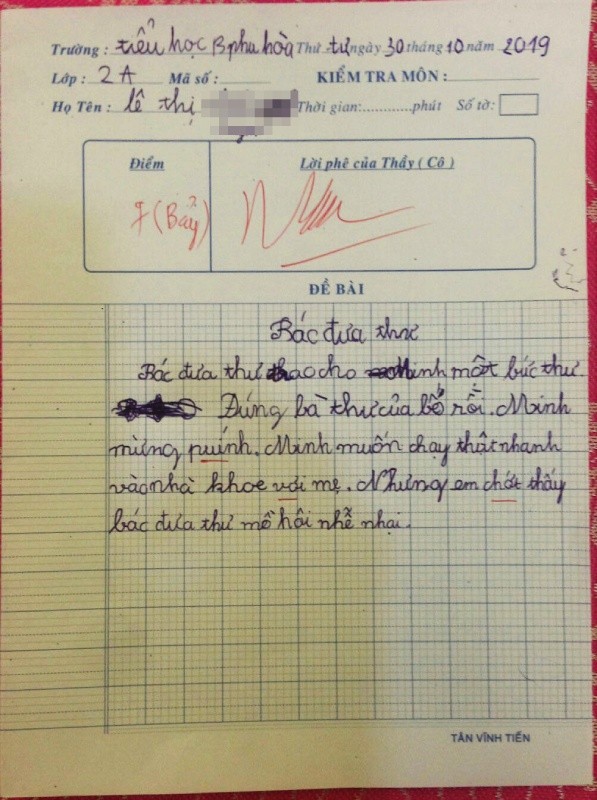 Trường : tiểu học B phu hòa Thứ tư ngày 30 tháng 10 năm 2019
Lớp : 2A Mã số : KIỂM TRA MÔN :
Họ Tên : lê thị Thời gian:............phút Số tờ:
Điểm Lời phê của Thầy ( Cô )
7 (Bảy)
ĐỀ BÀI
Bác đưa thư
Bác đưa thư trao cho minh một bức thư.
Đúng bà thư của bố rồi. Minh
mừng puính. Minh muốn chạy thật nhanh
vào nhà khoe với mẹ. Nhưng em chớt thấy
bác đưa thư mồ hôi nhễ nhại.
TÂN VĨNH TIẾN